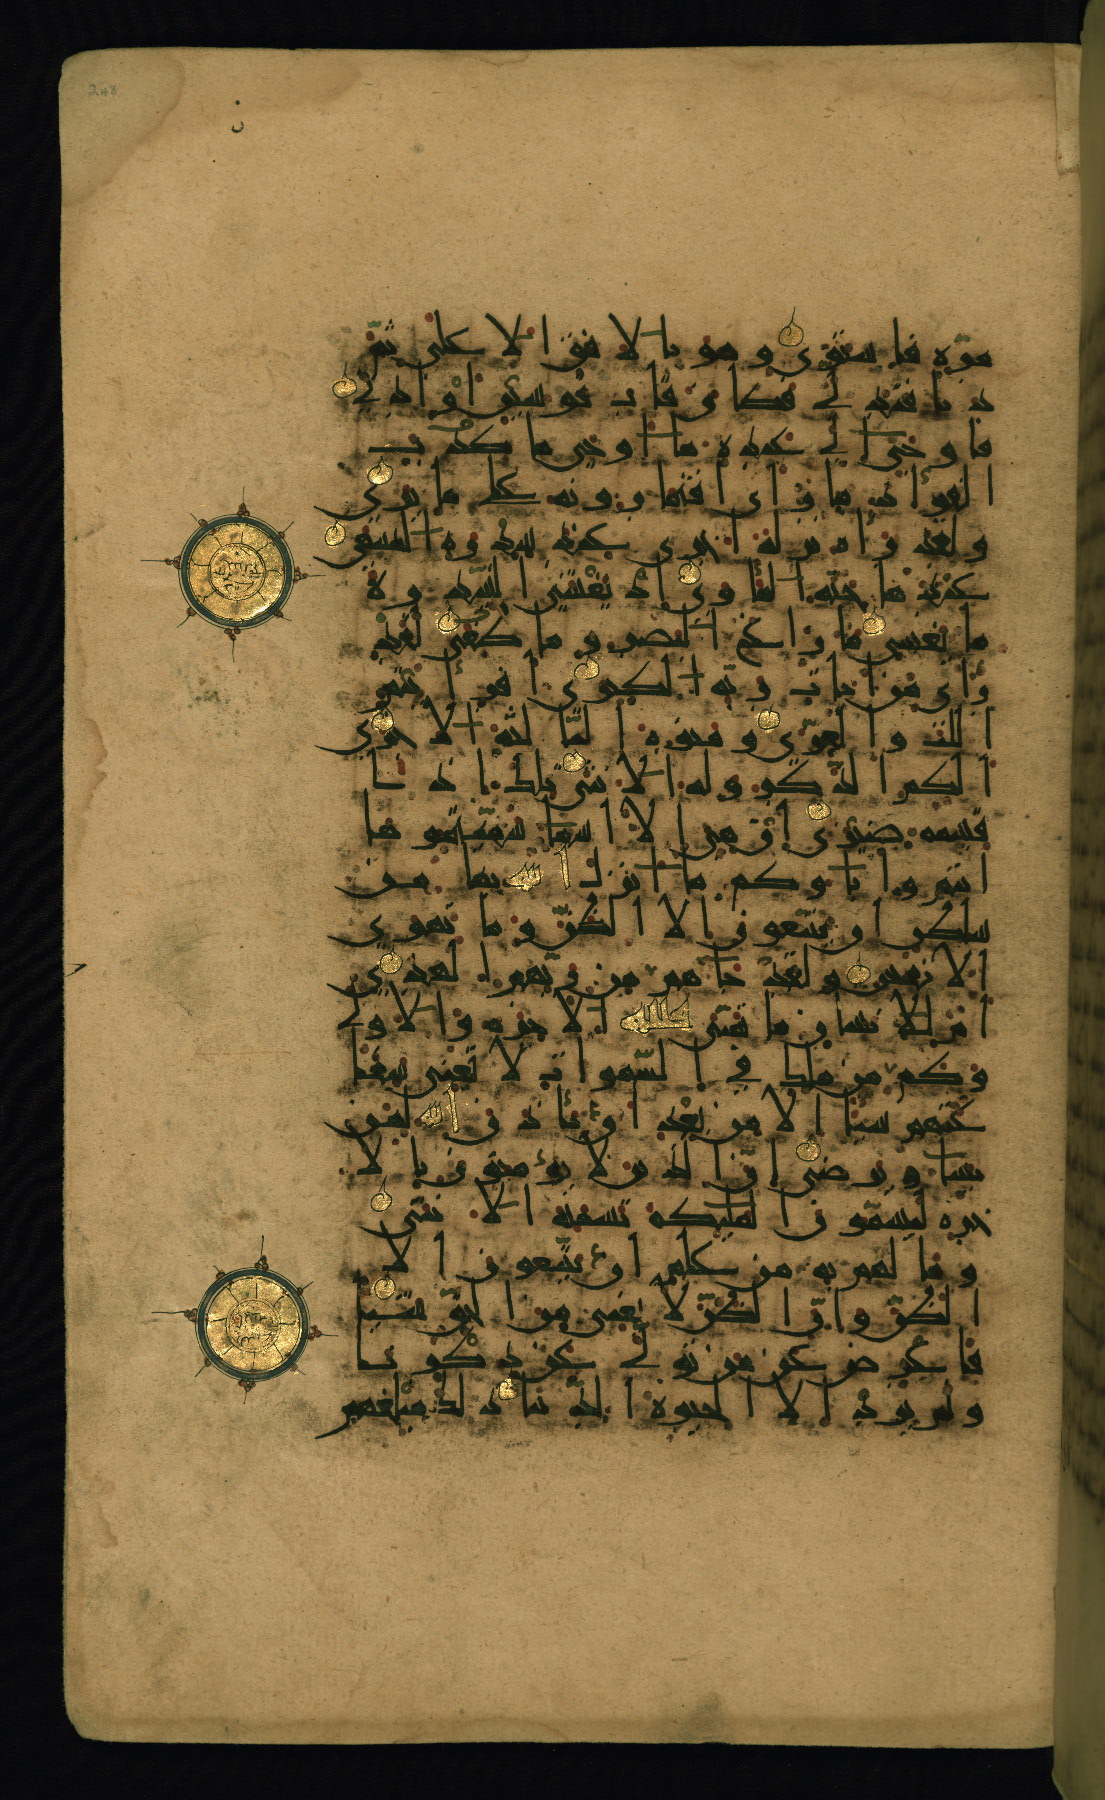 248
مرة فاستوى وهو بالافق الاعلى ثم
دنا فتدلى فكان قاب قوسين او ادنى
فاوحى الى عبده ما اوحى ما كذب
الفؤاد ما راى افتمارونه على ما يرى
ولقد راه نزلة اخرى عند سدرة المنتهى
عندها جنة الماوى اذ يغشى السدرة
ما يغشى ما زاغ البصر وما طغى لقد
راى من ايات ربه الكبرى افرايتم
اللت والعزى ومنوة الثالثة الاخرى
الكم الذكر وله الانثى تلك اذا
قسمة ضيزى ان هي الا اسما سميتموها
انتم واباوكم ما انزل الله بها من
سلطن ان يتبعون الا الظن وما تهوى
الانفس ولقد جاهم من ربهم الهدى
ام للانسان ما تمنى فلله الاخرة والاولى
وكم من ملك في السموات لا تغني شفعـ
ـتهم شيئا الا من بعد ان ياذن الله لمن
يشا ويرضى ان الذين لا يؤمنون بالا
خرة ليسمون الملئكة تسمية الانثى
وما لهم به من علم ان يتبعون الا
الظن وان الظن لا يغني من الحق شيئا
فاعرض عن من تولى عن ذكرنا
ولم يرد الا الحيوة الدنيا ذلك مبلغهم